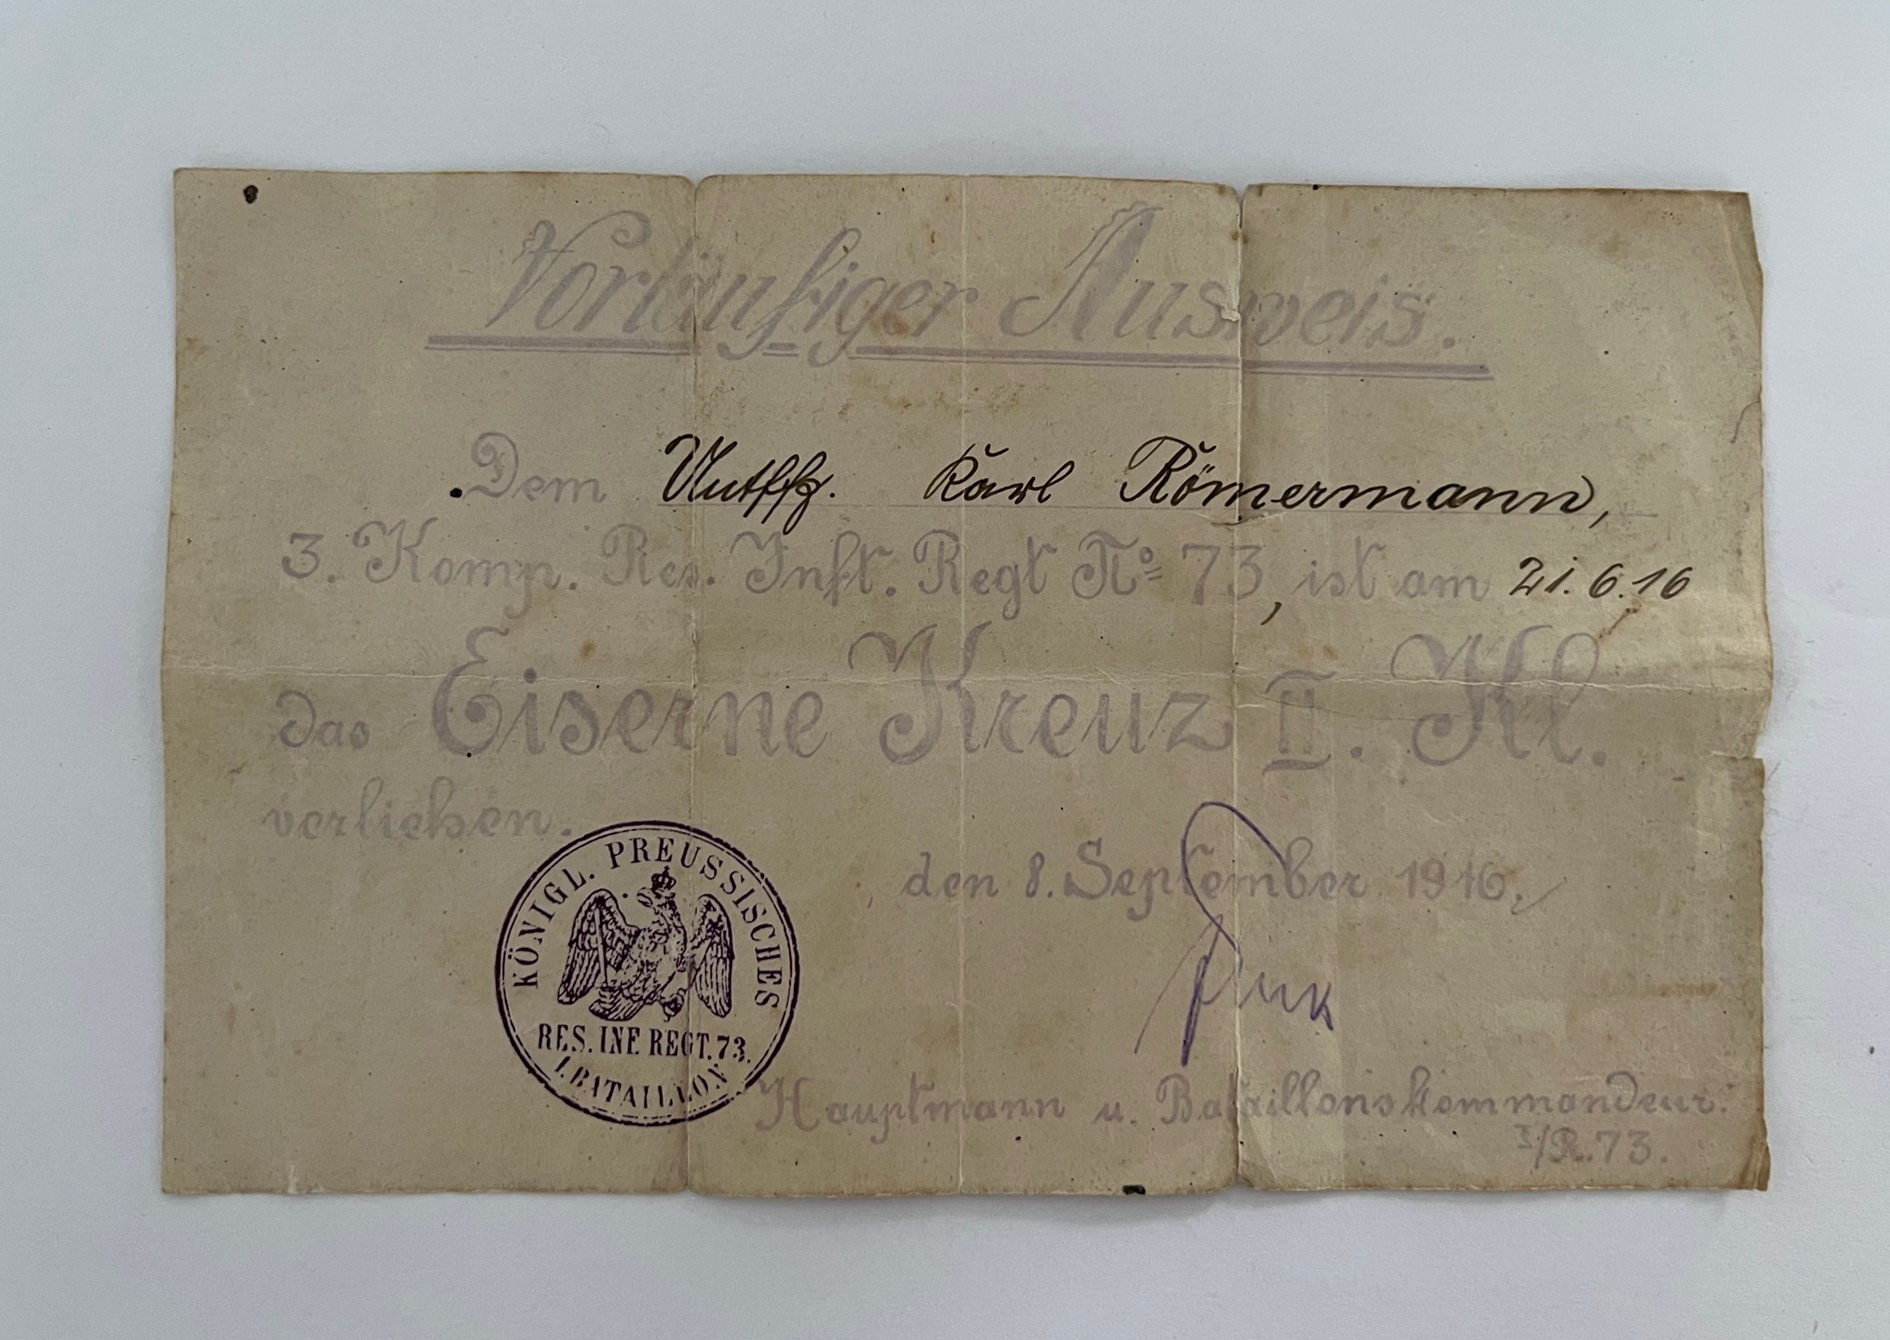 Vorläufiger Ausweis.
Dem Untffz. Karl Römermann,
3. Komp. Res. Inft. Regt No 73, ist am 21.6.16
das Eiserne Kreuz II. Kl.
verliehen.
KÖNIGL. PREUSSISCHES
RES. INF. REGT. 73.
I. BATAILLON
den 8. September 1916.
Hauptmann u. Bataillonskommandeur.
I/R. 73.